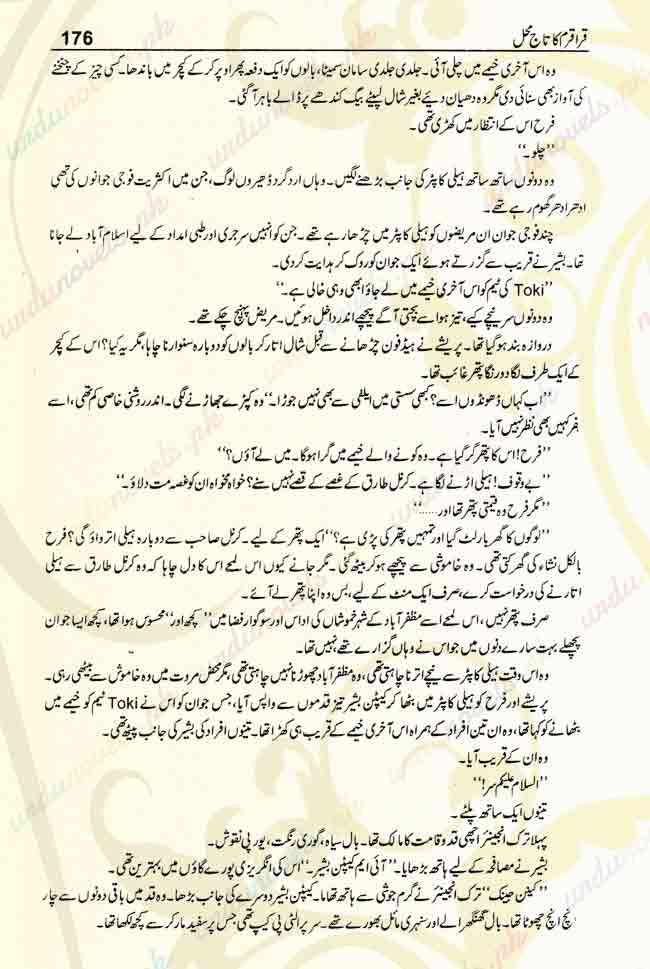 قراقرم کا تاج محل 176
وہ اس آخری خیمے میں چلی آئی۔ جلدی جلدی سامان سمیٹا، بالوں کو ایک دفعہ پھر اوپر کر کے کیچر میں باندھا۔ کسی چیز کے چٹخنے
کی آواز بھی سنائی دی مگر وہ دھیان دیئے بغیر شال لپیٹے بیگ کندھے پر ڈالے باہر آ گئی۔
فرح اس کے انتظار میں کھڑی تھی۔
”چلو۔“
وہ دونوں ساتھ ساتھ ہیلی کاپٹر کی جانب بڑھنے لگیں۔ وہاں اردگرد ڈھیروں لوگ، جن میں اکثریت فوجی جوانوں کی تھی
ادھر ادھر گھوم رہے تھے۔
چند فوجی جوان ان مریضوں کو ہیلی کاپٹر میں چڑھا رہے تھے۔ جن کو انہیں سرجری اور طبی امداد کے لیے اسلام آباد لے جانا
تھا۔ بشیر نے قریب سے گزرتے ہوئے ایک جوان کو روک کر ہدایت کر دی۔
”Toki کی ٹیم کو اس آخری خیمے میں لے جاؤ ابھی وہی خالی ہے۔“
وہ دونوں سر نیچے کیے، تیز ہوا سے بچتی آگے پیچھے اندر داخل ہوئیں۔ مریض پہنچ چکے تھے۔
دروازہ بند ہو گیا تھا۔ پریشے نے ہیڈ فون چڑھانے سے قبل شال اتار کر بالوں کو دوبارہ سنوارنا چاہا، مگر یہ کیا؟ اس کے کیچر
کے ایک طرف لگا دو رنگا پتھر غائب تھا۔
”اب کہاں ڈھونڈوں اسے؟ کبھی سستی میں ایلفی سے بھی نہیں جوڑا۔“ وہ کپڑے جھاڑنے لگی۔ اندر روشنی خاصی کم تھی، اسے
پتھر کہیں بھی نظر نہیں آیا۔
”فرح! اس کا پتھر گر گیا ہے۔ وہ کونے والے خیمے میں گرا ہوگا۔ میں لے آؤں؟“
”بے وقوف! ہیلی اڑنے لگا ہے۔ کرنل طارق کے غصے کے قصے نہیں سنے؟ خوامخواہ ان کو غصہ مت دلاؤ۔“
”مگر فرح وہ قیمتی پتھر تھا اور......“
”لوگوں کا گھر بار لٹ گیا اور تمہیں پتھر کی پڑی ہے؟“ ایک پتھر کے لیے۔ کرنل صاحب سے دوبارہ ہیلی اترواؤ گی؟ فرح
بالکل نشاء کی گھر کتی تھی۔ وہ خاموشی سے پیچھے ہو کر بیٹھ گئی۔ مگر جانے کیوں اس لمحے اس کا دل چاہا کہ وہ کرنل طارق سے ہیلی
اتارنے کی درخواست کرے، صرف ایک منٹ کے لیے، بس وہ اپنا پتھر لے آئے۔
صرف پتھر نہیں، اس لمحے اسے مظفر آباد کے شہر خموشاں کی اداس اور سوگوار فضا میں ”کچھ اور“ محسوس ہوا تھا، کچھ ایسا جو ان
پچھلے بہت سارے دنوں میں جو اس نے وہاں گزارے تھے، نہیں تھا۔
وہ اس وقت ہیلی کاپٹر سے نیچے اترنا چاہتی تھی، وہ مظفر آباد چھوڑنا نہیں چاہتی تھی، مگر محض مروت میں وہ خاموش سے بیٹھی رہی۔
پریشے اور فرح کو ہیلی کاپٹر میں بٹھا کر کیپٹن بشیر تیز قدموں سے واپس آیا، جس جوان کو اس نے Toki ٹیم کو خیمے میں
بٹھانے کو کہا تھا، وہ ان تین افراد کے ہمراہ اس آخری خیمے کے قریب ہی کھڑا تھا۔ تینوں افراد کی بشیر کی جانب پیٹھ تھی۔
وہ ان کے قریب آیا۔
”السلام علیکم سر!“
تینوں ایک ساتھ پلٹے۔
پہلا ترک انجینئر اچھی قد و قامت کا مالک تھا۔ بال سیاہ، گوری رنگت، یورپی نقوش۔
بشیر نے مصافحہ کے لیے ہاتھ بڑھایا۔ ”آئی ایم کیپٹن بشیر۔“ اس کی انگریزی پورے گاؤں میں بہترین تھی۔
”کینن جینک“ ترک انجینئر نے گرم جوشی سے ہاتھ تھاما۔ کیپٹن بشیر دوسرے کی جانب بڑھا۔ وہ قد میں باقی دونوں سے چار
پانچ انچ چھوٹا تھا۔ بال گھنگھرالے اور سنہری مائل بھورے تھے۔ سر پر الٹی پی کیپ تھی جس پر سفید مارکر سے کچھ لکھا تھا۔